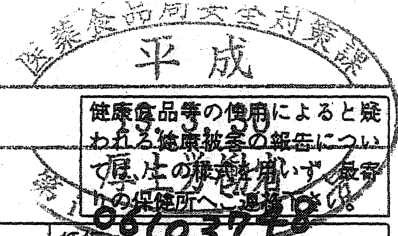 医薬食品局安全対策課
平成
健康食品等の使用によると疑
われる健康被害の報告につい
ては、この様式を用いず、最寄
りの保健所へご連絡下さい。
厚生労働省